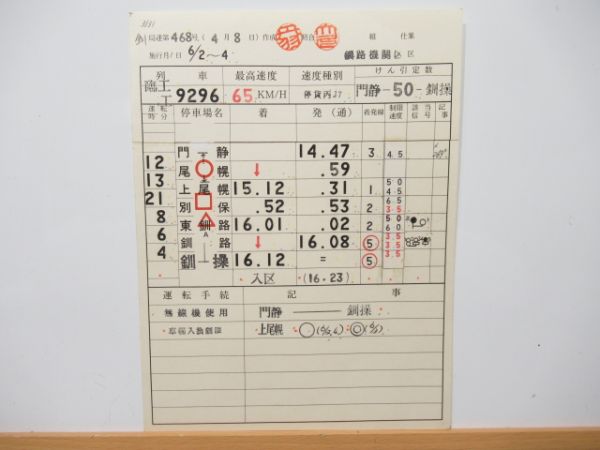 局運第468号(4月8日)作成 照合 組 仕業
施行月/日 6/2~4 釧路機関区
列 車 最高速度 速度種別 けん引定数
臨工 9296 65KM/H 停貨丙 門静-50-釧操
運転時分 停車場名 着 発(通) 着発線 制限速度 該当信号 記事
門静 14.47 3 45
12 尾幌 ↓ .59
13 上尾幌 15.12 .31 1 50 45
21 別保 .52 .53 2 65 35
8 東釧路 16.01 .02 2 50 60
6 釧路 ↓ 16.08 5 35 35
4 釧操 16.12 = 5 35
入区 (16.23)
運転手続 記事
無線機使用 門静 釧操
上尾幌